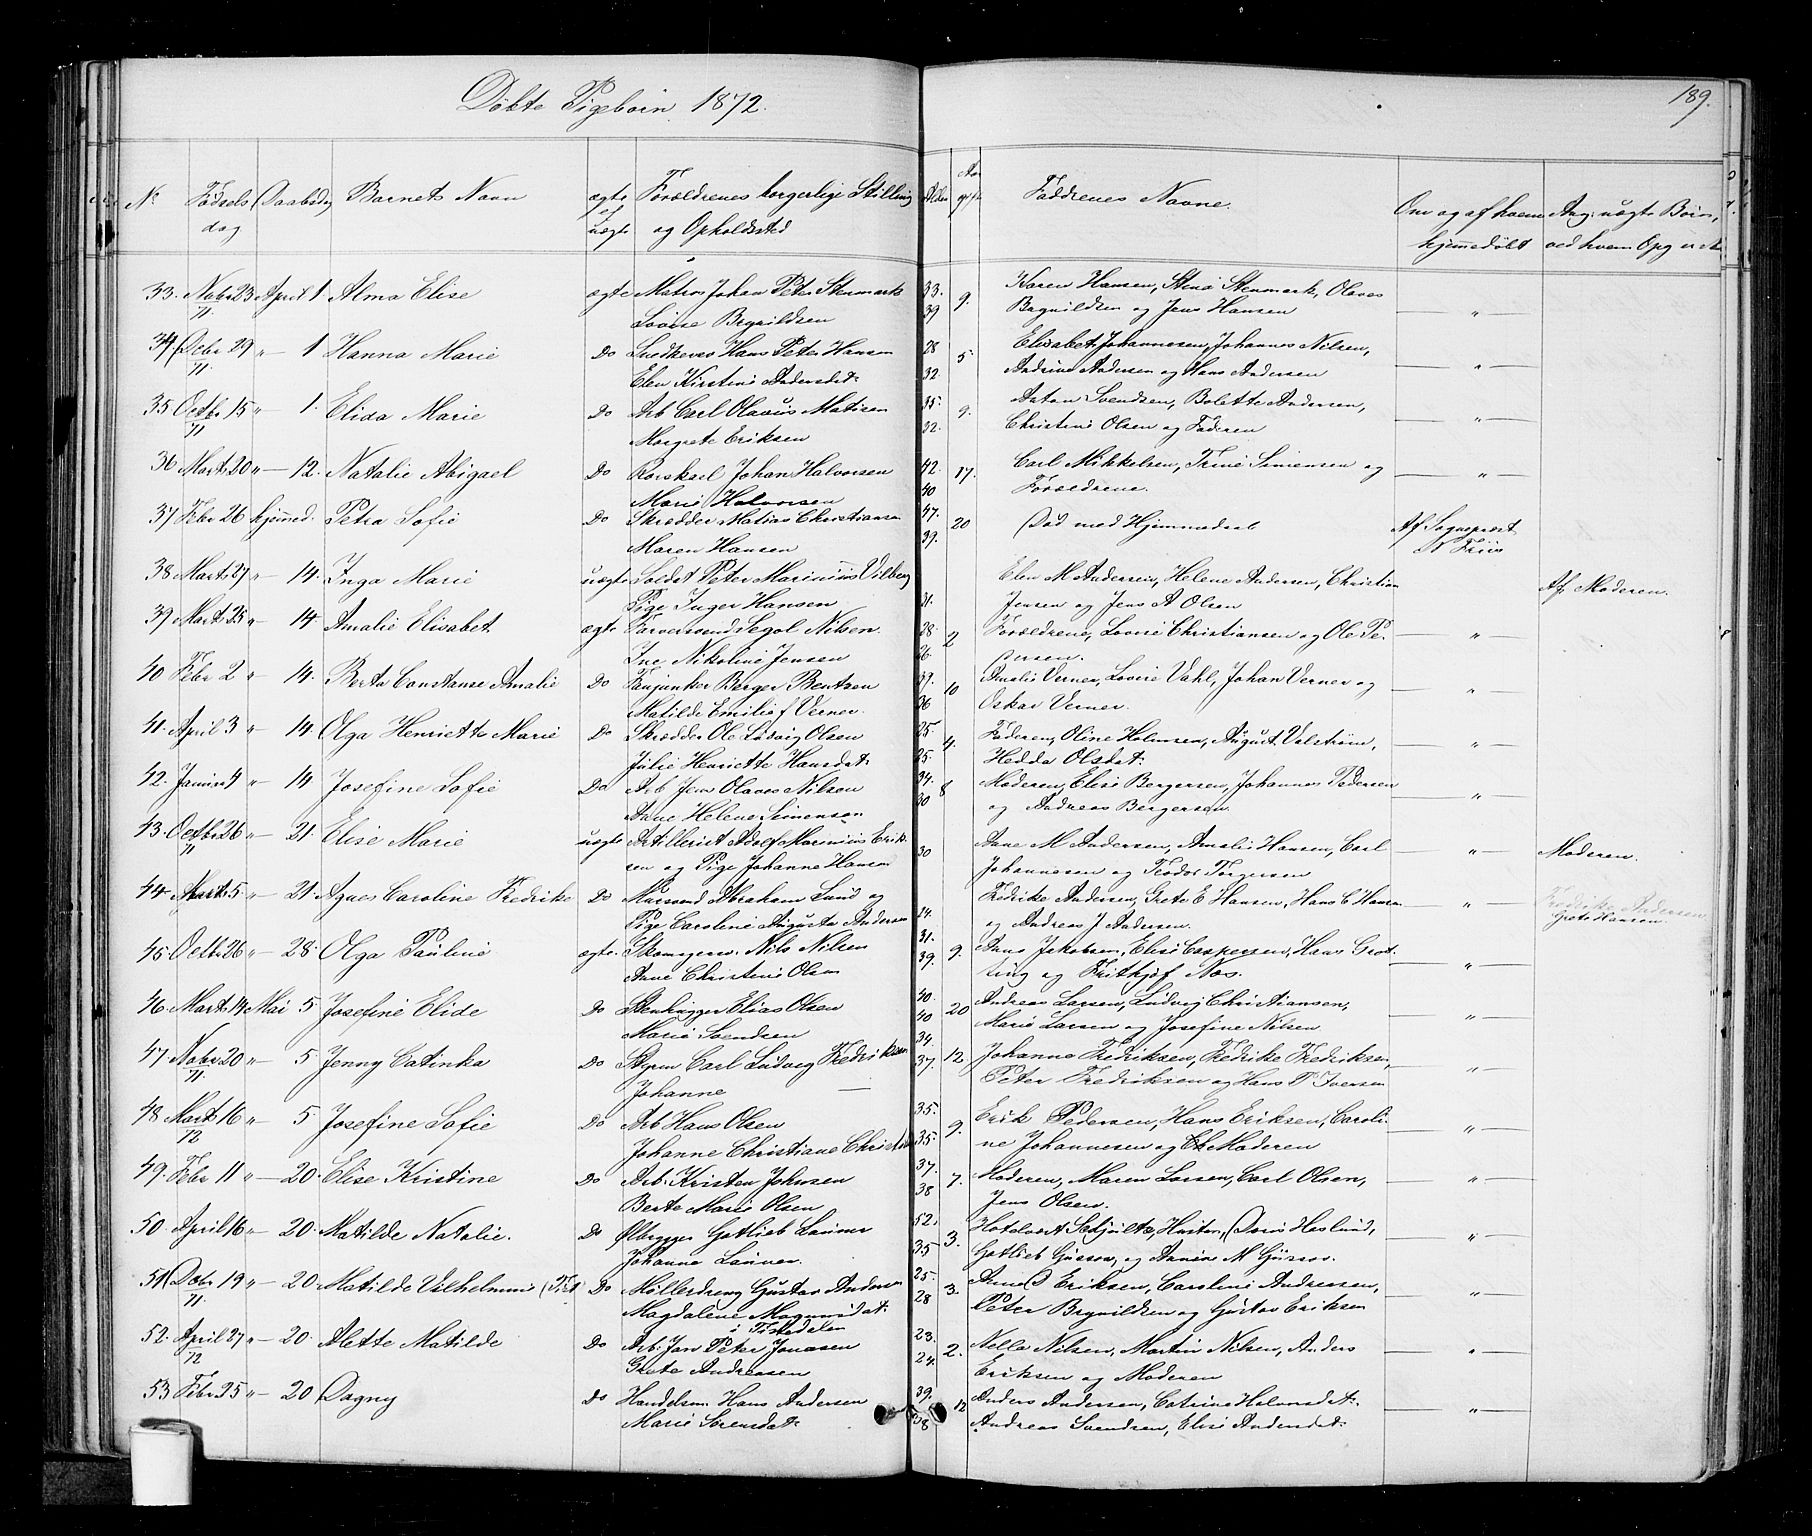 Döbte Pigebörn 1872.
189.
No Födsels dag Daabsdag Barnets Navn ægte og uægte Forældrenes borgerlige Stilling og Opholdssted Alder Faddrenes Navne. Om og af hvem hjemmedöbt Ang: uægte Börn, ved hvem Opg er
33. Nobr 23/71 April 1. Alma Elise ægte Matros Johan Peter Stenmark 33. 9. Karen Hansen, Stina Stenmark, Olaves — " —
Lovise Brynildsen 39 Brynildsen og Jens Hansen
34. Debr 29/71 " — 1 Hanna Marie Do Snedkersv Hans Peter Hansen 28 5. Elisabet Johannesen, Johannes Nilsen, — " —
Elen Kirstine Andersdat: 32. Andrine Andersen og Hans Andersen
35 Octbr 15/71 " — 1. Elida Marie Do Arb Carl Olavus Matisen 35. 9. Anton Svendsen, Bolette Andersen, — " —
Margrete Eriksen 32. Christine Olsen og Faderen
36 Marts 20 " — 12. Natalie Abigael Do Rorskarl Johan Halvorsen 42. 17. Carl Mikkelsen, Trine Simensen og — " —
Marie Halvorsen 40 Forældrene.
37 Febr 26 hjemmed. Petra Sofie Do Skrædder Matias Christiansen 47. 20 Död med Hjemmedaab Af Sognepræst
Maren Hansen 39. N Friis
38 Marts 27 " — 14. Inga Marie uægte Soldat Peter Marinius Vilberg Elen M Andersen, Helene Andersen, Christian Af Moderen.
Pige Inger Hansen 31. Jensen og Jens A Olsen
39 Marts 25 " — 14 Amalie Elisabet ægte Farversvend Segol Nilsen. 28. 2 Forældrene, Lovise Christiansen og Ole Pe- " —
Ine Nikoline Jensen 26. dersen.
40 Febr 2 " — 14. Berta Constanse Amalie Do Fanjunker Berger Bentzen 39. 10 Amalie Verner, Lovise Vahl, Johan Verner og — " —
Matilde Emilie f Verner. 26 Oskar Verner.
41. April 3 " — 14. Olga Henriette Marie Do Skrædder Ole Ludvig Olsen 25. 4. Faderen, Oline Holmsen, August Valström, — " —
Julie Henriette Hansdat: 25. Hedda Olsdat:
42. Januar 4 " — 14 Josefine Sofie Do Arb Jens Olaves Nilsen 34. 8 Moderen, Elise Bergersen, Johannes Pedersen — " —
Anne Helene Simensen 30 og Andreas Bergersen
43. Octbr 26/71 " — 21. Elise Marie uægte Artillerist Adolf Marinius Erik- Ane M Andersen, Amalie Hansen, Carl " — Moderen.
sen og Pige Johanne Hansen 30 Johannesen og Teodor Torgersen
44 Marts 5. " — 21. Agnes Caroline Fredrike Do Mursvend Abraham Lund og Fredrike Andersen, Grete E Hansen, Hans C Hansen — " — Fredrike Andersen
Pige Caroline Augusta Andersen 24. og Andreas J Andersen. Grete Hansen
45 Octbr 26 " — 28. Olga Pauline ægte. Skomagersv. Nils Nilsen 31. 9. Anna Jakobsen, Elise Caspersen, Hans Grot- " —
Ane Christine Olsen 39. ting og Fritkjof Næs.
46. Marts 14 Mai 5 Josefine Elide Do Stenhugger Elias Olsen 40. 20 Andreas Larsen, Ludvig Christiansen, — " —
Marie Svendsen 40 Marie Larsen og Josefine Nilsen
47 Nobr 20/71 " — 5. Jenny Catinka Do Styrm Carl Ludvig Fredriksen 34. 12. Johanne Fredriksen, Fredrike Fredriksen, — " —
Johanne — 37. Peter Fredriksen og Hans P Iversen
48 Marts 16/72 " — 5 Josefine Sofie Do Arb Hans Olsen 35. 9. Erik Pedersen, Hans Eriksen, Caroli- — " —
Johanne Christiane Christians 35. ne Johannesen og Moderen
49. Febr 11 " — 20. Elise Kristine Do Arb. Kristen Johnsen 37. 7. Moderen, Maren Larsen, Carl Olsen, — " —
Berte Marie Olsen 38 Jens Olsen.
50. April 16 " — 20. Matilde Natalie. Do Ölbrygger Gotlieb 52. 3. Schjultz, Hustru, Doris Heslund, — " —
Johanne 35 Gotlieb og M
51 Debr 19/71 " — 20. Matilde Vilhelmine Do Möllerdreng Gustav Andersen 25. 3. Anne D Eriksen, Caroline Andreasen, — " —
Magdalene Magnusdat: 28 Peter Brynildsen og Gustav Eriksen
i Tistedalen
52. April 27/72 " — 20. Mette Matilde Do Arb. Jan Peter Jonasen 23. 2. Nelle Nilsen, Martin Nilsen, Anders — " —
Grete Andreasen 24. Eriksen og Moderen
53 Febr 25 " — 20 Dagny Do Handelsm. Hans Andersen 39. 12 Anders Andersen, Catrine Halvorsdat: — " —
Marie Sörensdat: 38 Andreas Svendsen, Elise Andersdat: